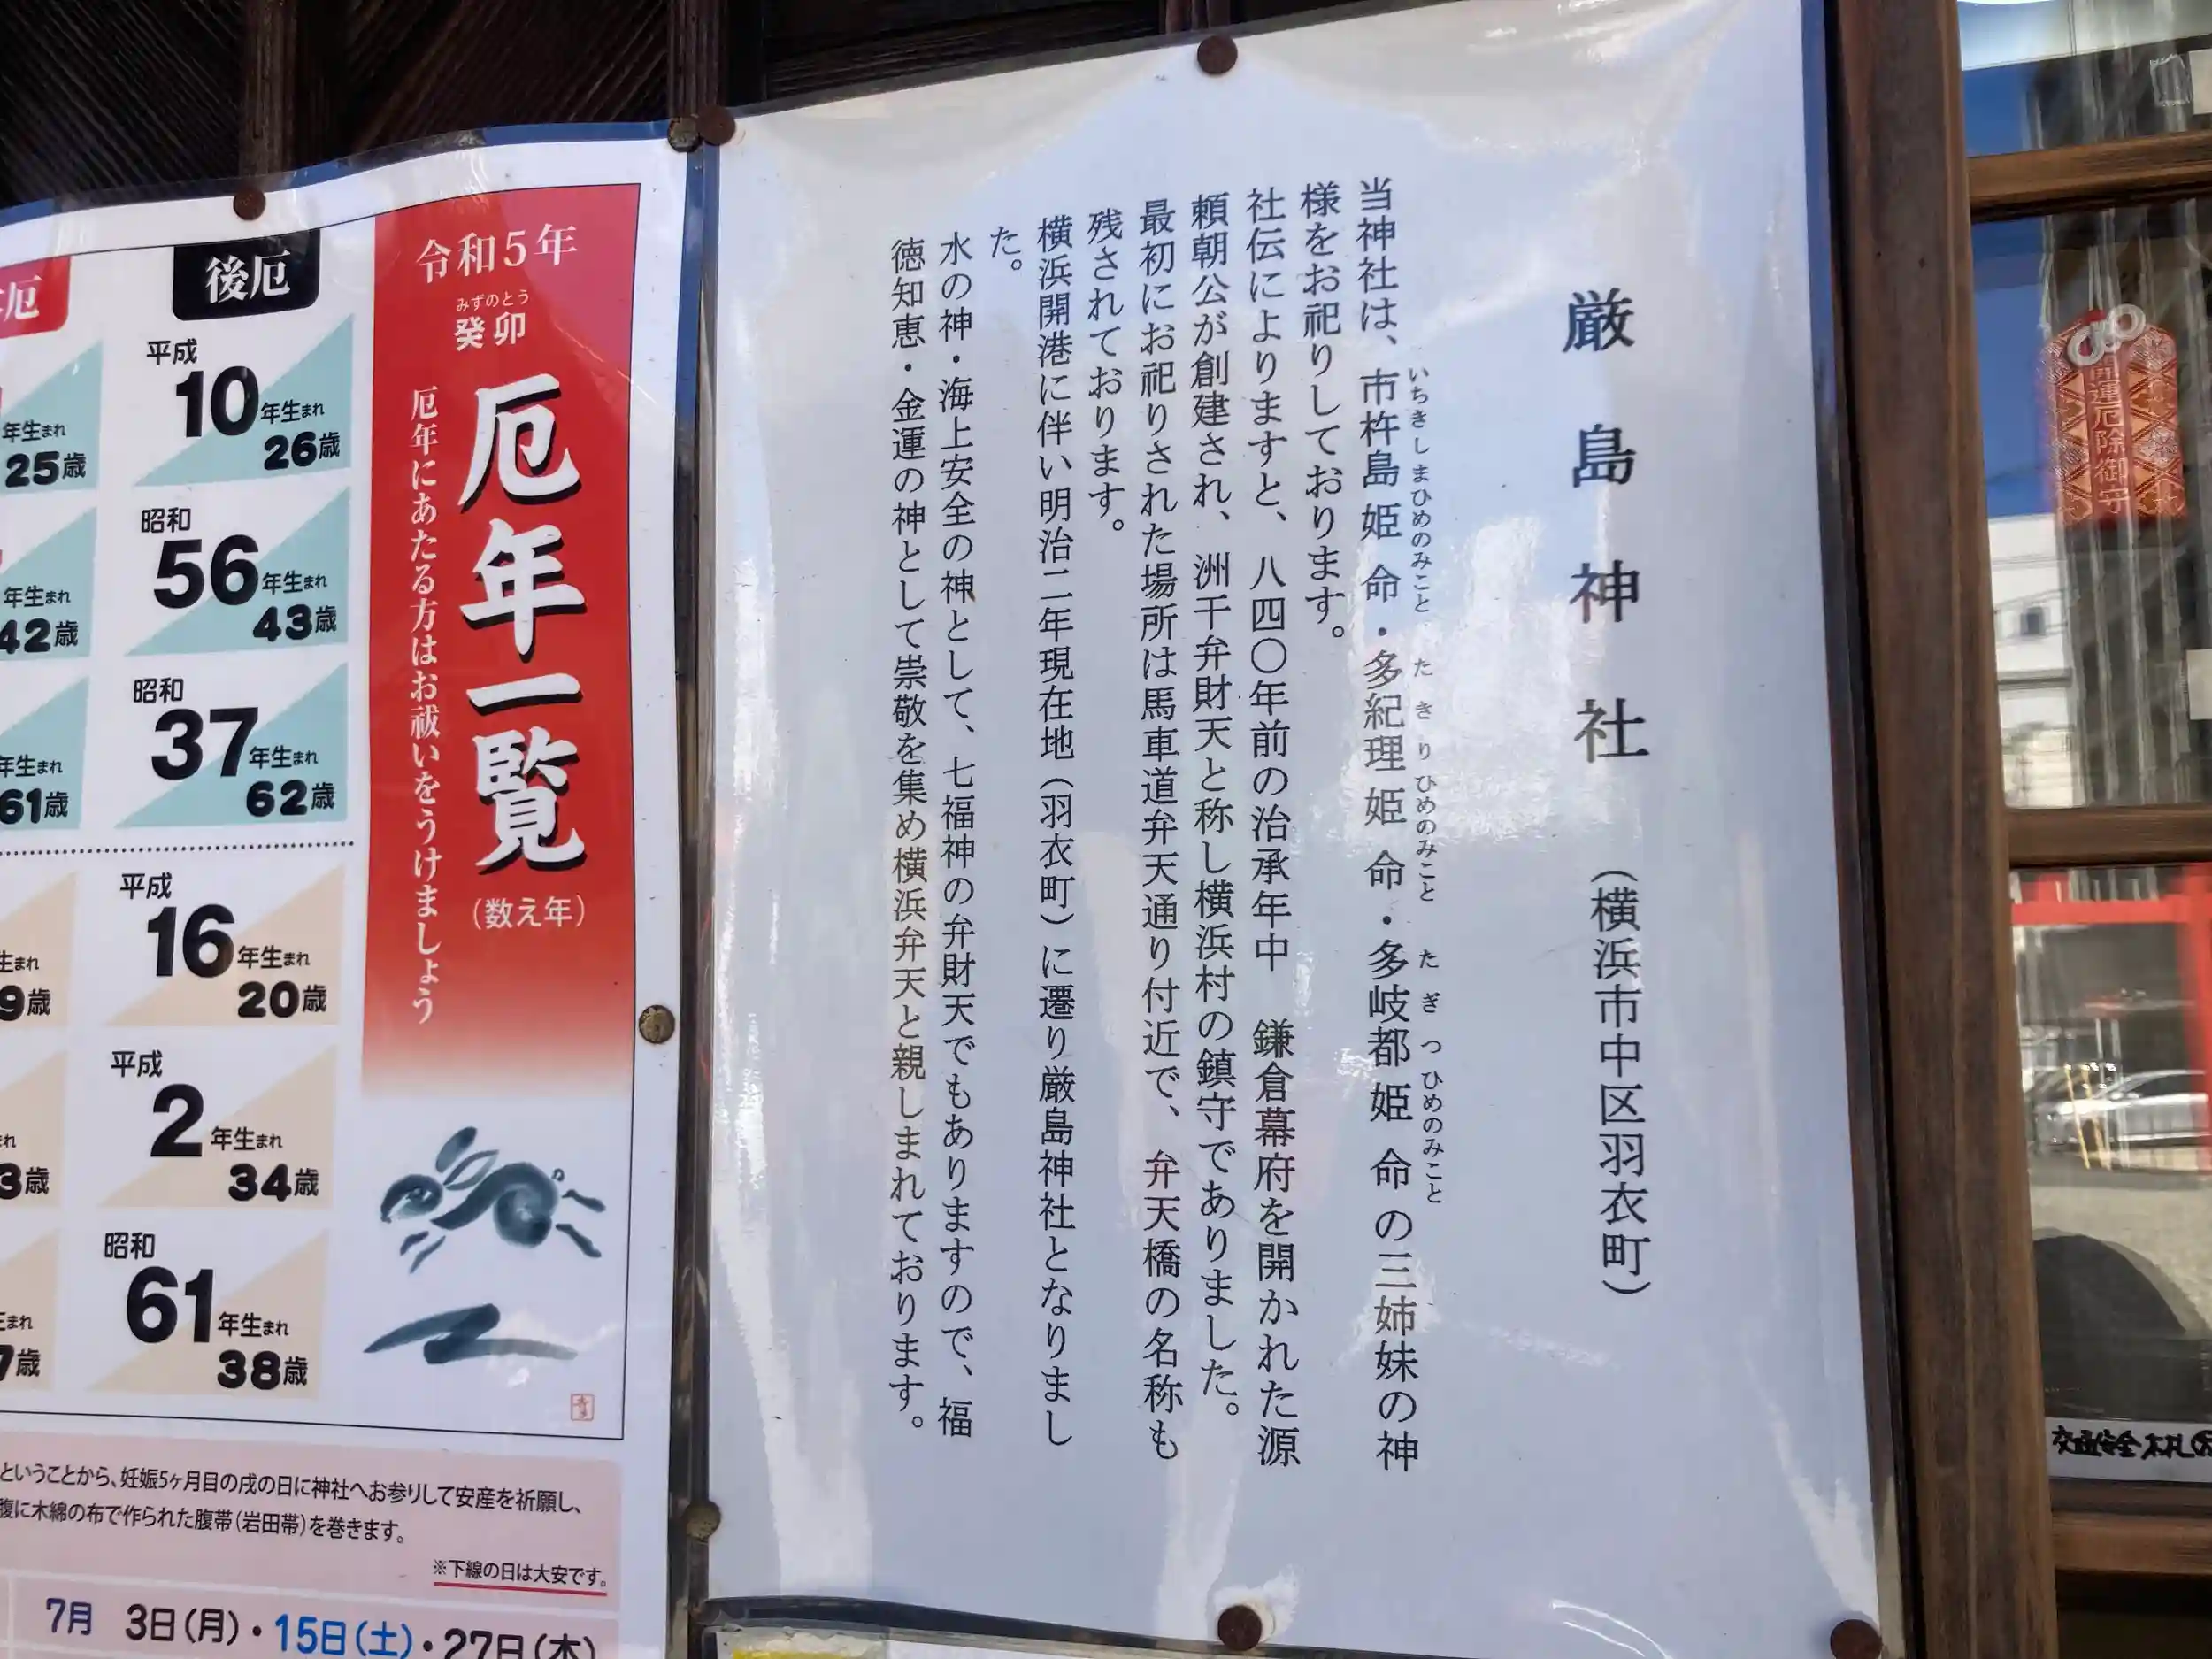 厳島神社（横浜市中区羽衣町）
いちきしまひめのみこと　たきりひめのみこと　たぎつひめのみこと
当神社は、市杵島姫命・多紀理姫命・多岐都姫命の三姉妹の神
様をお祀りしております。
社伝によりますと、八四〇年前の治承年中　鎌倉幕府を開かれた源
頼朝公が創建され、洲干弁財天と称し横浜村の鎮守でありました。
最初にお祀りされた場所は馬車道弁天通り付近で、弁天橋の名称も
残されております。
横浜開港に伴い明治二年現在地（羽衣町）に遷り厳島神社となりまし
た。
水の神・海上安全の神として、七福神の弁財天でもありますので、福
徳知恵・金運の神として崇敬を集め横浜弁天と親しまれております。
令和5年
みずのとう
癸卯
厄年一覧
（数え年）
厄年にあたる方はお祓いをうけましょう
後厄
平成
10年生まれ
26歳
昭和
56年生まれ
43歳
昭和
37年生まれ
62歳
平成
16年生まれ
20歳
平成
2年生まれ
34歳
昭和
61年生まれ
38歳
厄
年生まれ
25歳
年生まれ
42歳
年生まれ
61歳
生まれ
9歳
まれ
3歳
まれ
7歳
ということから、妊娠5ヶ月目の戌の日に神社へお参りして安産を祈願し、
腹に木綿の布で作られた腹帯（岩田帯）を巻きます。
※下線の日は大安です。
7月　3日（月）・15日（土）・27日（木）
開運厄除御守
交通安全